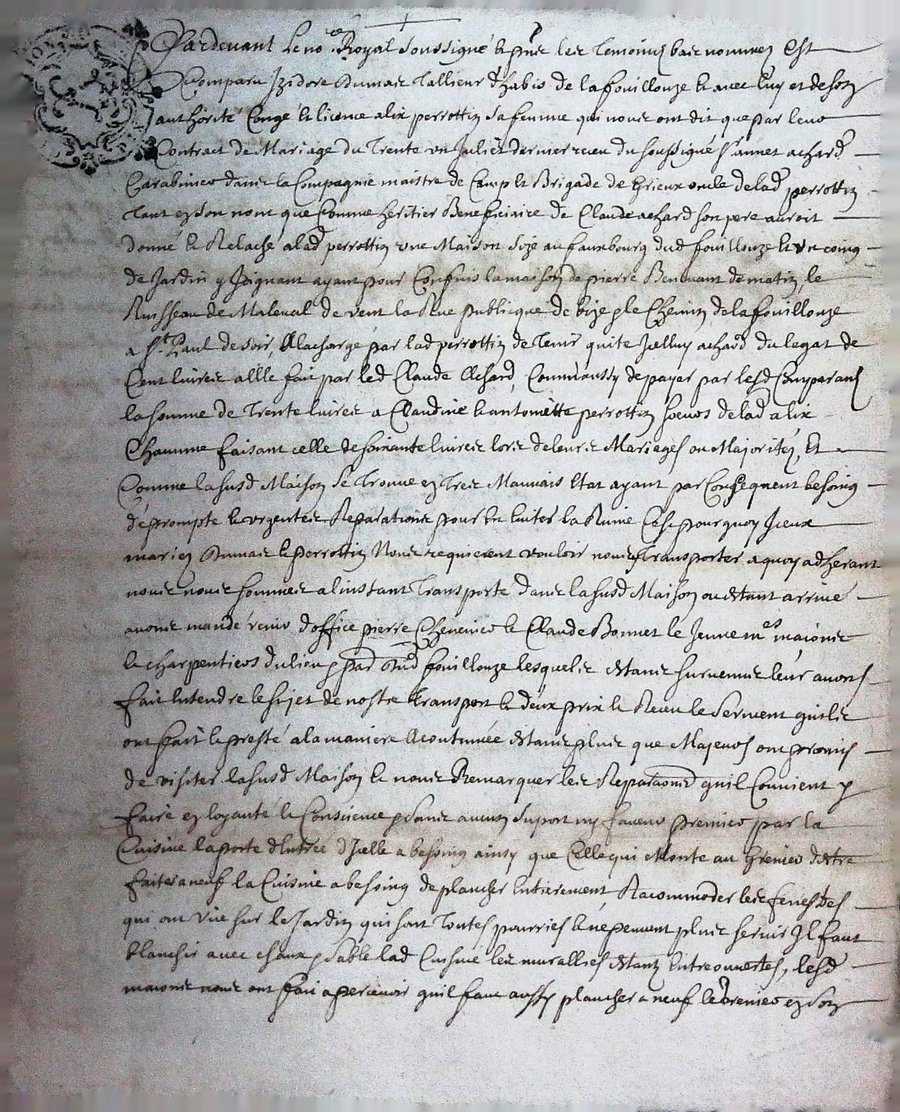 Pardevant Le no.re Royal soussigné & pnt les Temoins bas nommes Est
Comparu Izidore Dumas Tallieur d'habis de lafouillouze & avec luy et de son
authorité Congé & licence alix perrottin sa femme qui nous ont dit que par leur
Contract de Mariage du Trente un Juliet dernier receu du soussigné s.r annet achard
Carabinier dans la Compagnie maistre de Camp & Brigade de oncle de lad perrottin
Tant en son nom que Comme heritier Beneficiaire de Claude achard son pere auroit
donné & Relaché a lad perrottin une Maison size au fauxbourg dud fouillouze & un coing
de Jardin y Joignant ayant pour Confins la maison de pierre de matin, le
Ruisseau de Maleval de vent la Rue publique de bize & le Chemin de lafouillouze
a St Paul de soir, a la charge par lad perrottin de Tenir quite Icelluy achard du legat de
Cent livres a elle fait par led Claude Achard, Comm'aussy de payer par lesd Comparans
la somme de Trente livres a Claudine & antoinette perrottin soeurs de lad alix
Chacune faisant celle de soixante livres lors de leurs Mariages ou Majorités, Et
Comme la susd Maison se Trouve en Tres Mauvais Etat ayant par Consequent besoing
de promptes & urgentes Reparations pour en eviter la Ruine C'est pourquoy Iceux
maries Dumas & perrottin Nous requierent vouloir nous y Transporter a quoy adherant
nous nous sommes a l'instant Transporté dans la susd Maison ou étant arrivé
avons mandé venir d'office pierre & Claude Bonnet le Jeune m.es maçons
& charpentiers du lieu & par.se dud fouillouze lesquels étans survenus leur avons
fait Entendre le sujet de nostre transport & d'eux pris & Receu le Serment qu'ils
ont fait & presté a la maniere acoutumée étans plus que Majeurs ont promis
de visiter la susd Maison & nous Remarquer les Reparaons qu'il Convient y
faire en loyauté & Conscience & sans aucun suport ny faveur Premier par la
Cuisine la porte d'Entrée d'Icelle a bessoing ainsy que Celle qui Monte au Grenier d'etre
faites a neuf la Cuisine a besoing de plancher Entierement, Racommoder les fenestres
qui ont vue sur le Jardin qui sont Toutes pourries & ne peuvent plus servir Il faut
blanchir avec chaux & sable lad Cuisine les muralles étant Entreouvertes, lesd
maçons nous ont fait apercevoir qu'il faut aussy plancher a neuf le Grenier en son